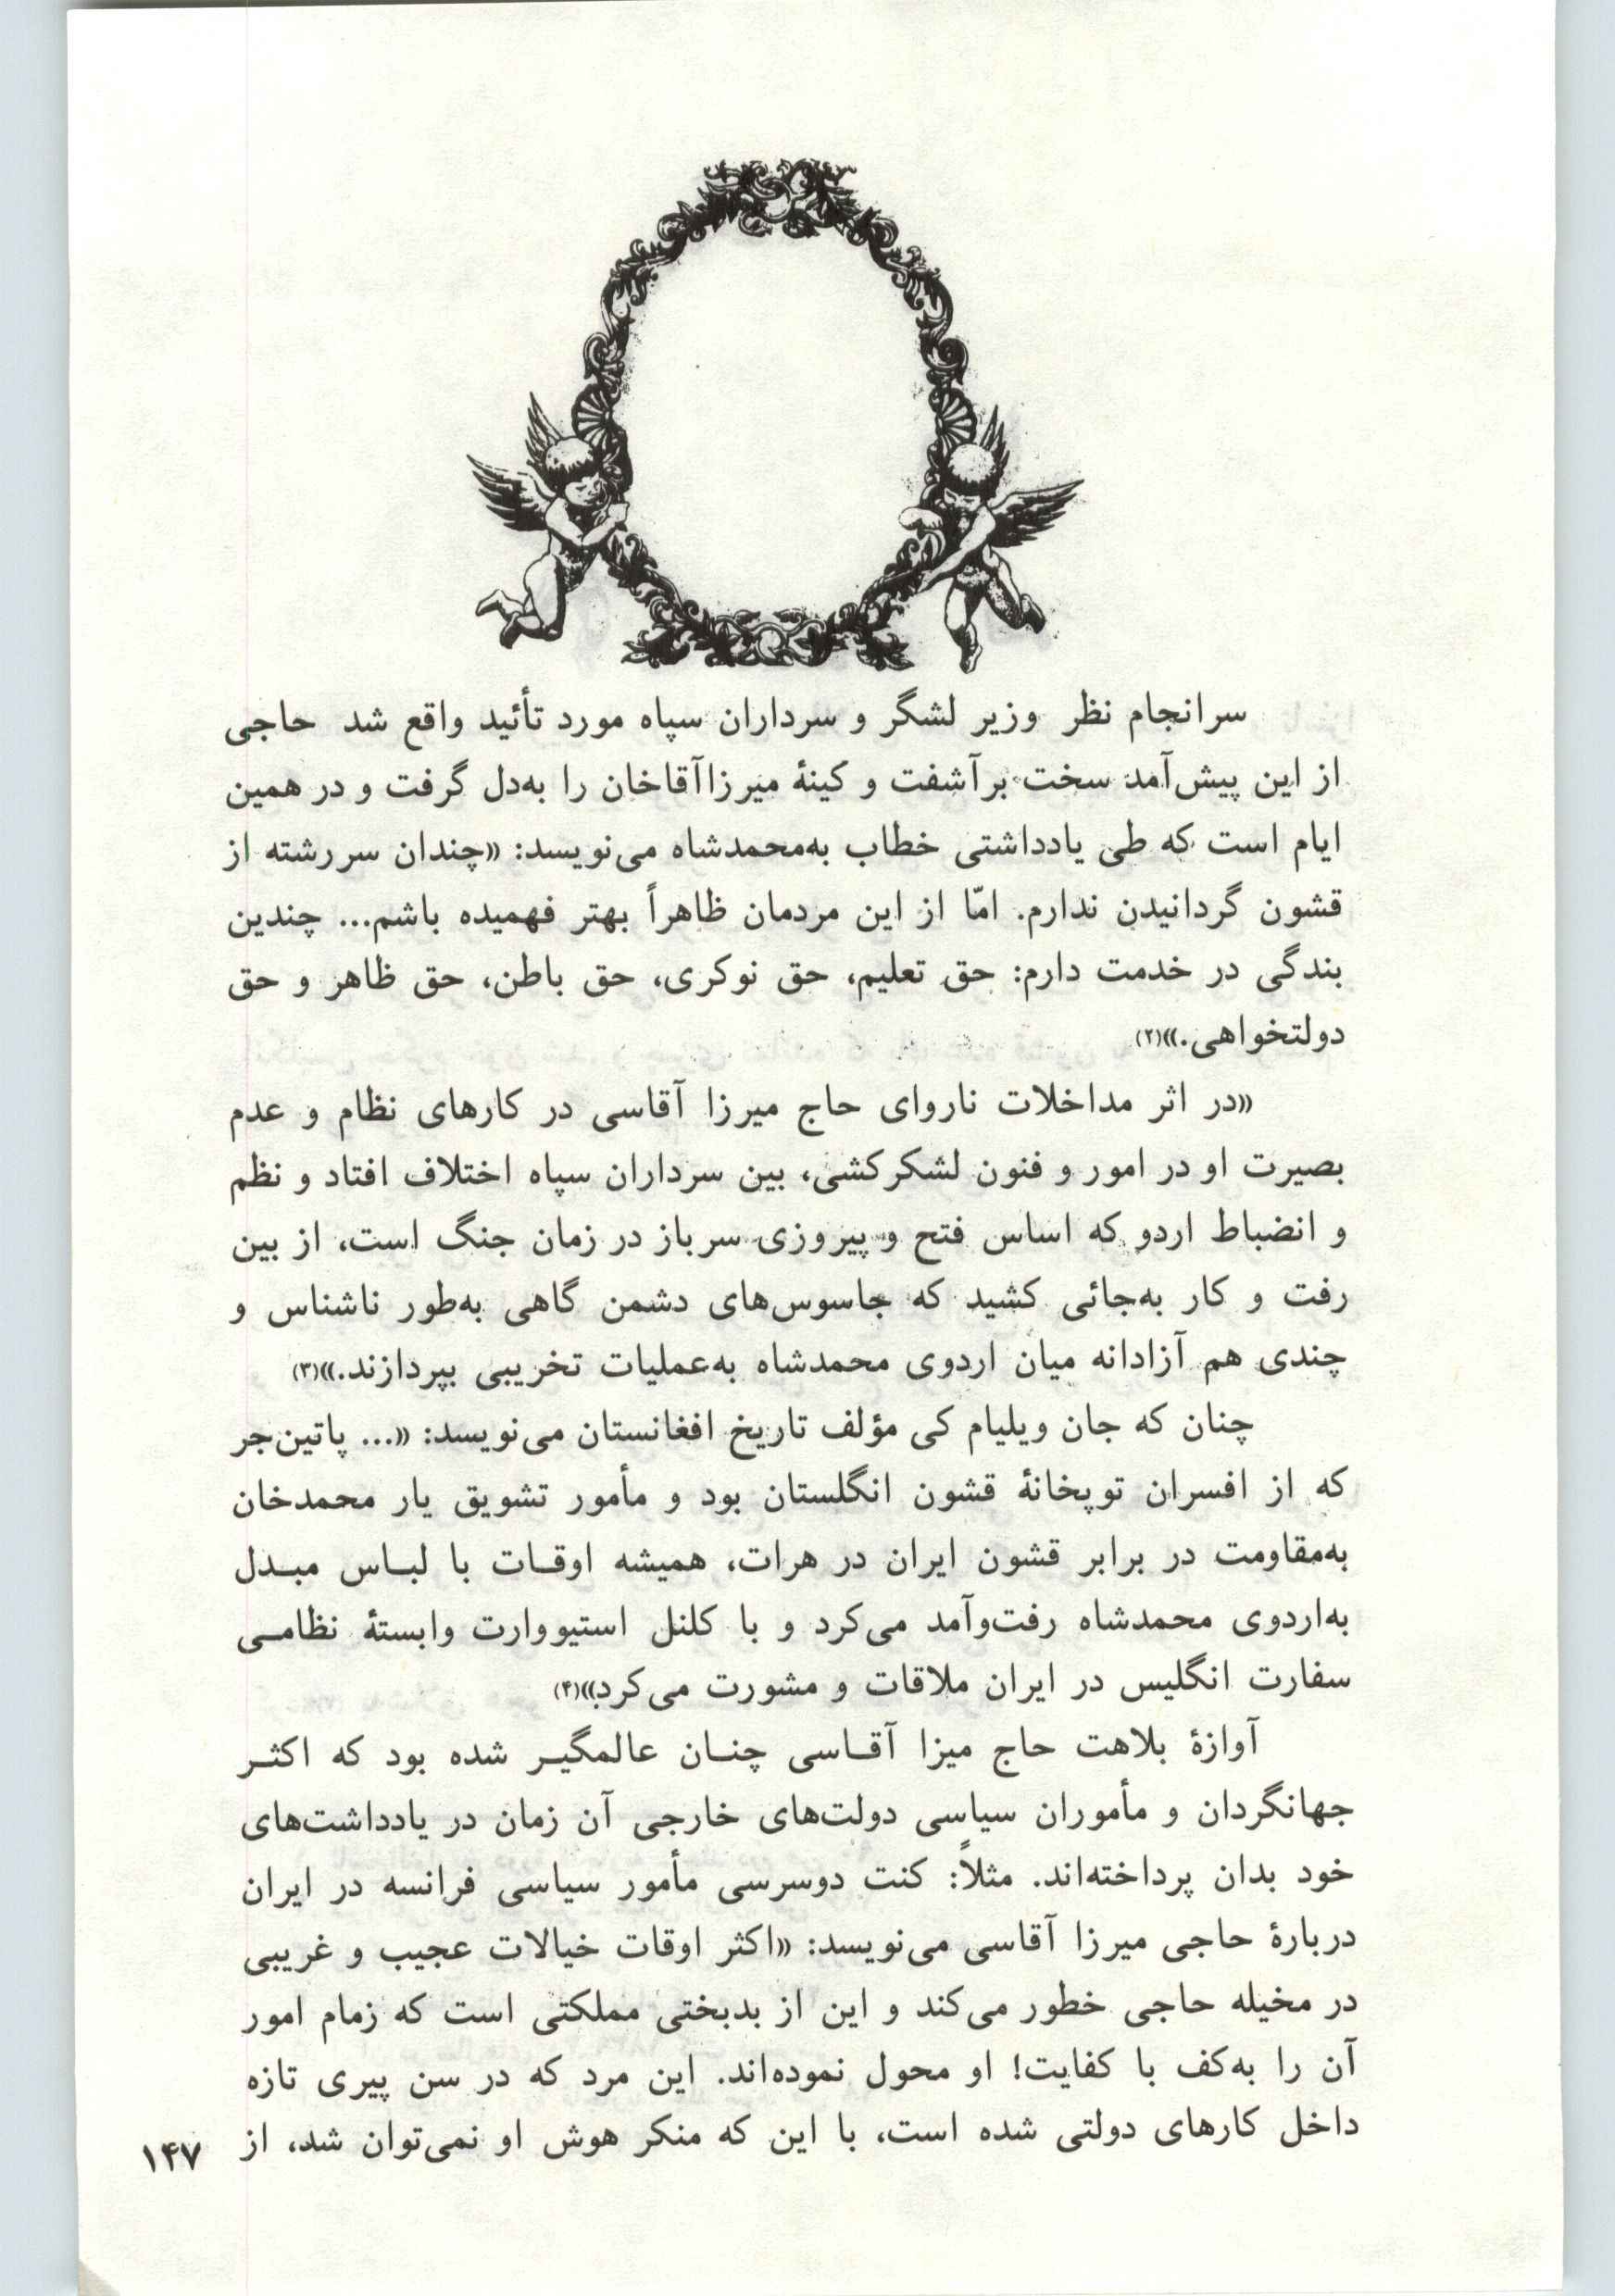 سرانجام نظر وزیر لشگر و سرداران سپاه مورد تأئید واقع شد حاجی
از این پیش‌آمد سخت برآشفت و کینهٔ میرزاآقاخان را به‌دل گرفت و در همین
ایام است که طی یادداشتی خطاب به‌محمدشاه می‌نویسد: «چندان سررشته از
قشون گردانیدن ندارم. امّا از این مردمان ظاهراً بهتر فهمیده باشم... چندین
بندگی در خدمت دارم: حق تعلیم، حق نوکری، حق باطن، حق ظاهر و حق
دولتخواهی.»(۲)
«در اثر مداخلات ناروای حاج میرزا آقاسی در کارهای نظام و عدم
بصیرت او در امور و فنون لشکرکشی، بین سرداران سپاه اختلاف افتاد و نظم
و انضباط اردو که اساس فتح و پیروزی سرباز در زمان جنگ است، از بین
رفت و کار به‌جائی کشید که جاسوس‌های دشمن گاهی به‌طور ناشناس و
چندی هم آزادانه میان اردوی محمدشاه به‌عملیات تخریبی بپردازند.»(۳)
چنان که جان ویلیام کی مؤلف تاریخ افغانستان می‌نویسد: «... پاتین‌جر
که از افسران توپخانهٔ قشون انگلستان بود و مأمور تشویق یار محمدخان
به‌مقاومت در برابر قشون ایران در هرات، همیشه اوقـات با لبـاس مبـدل
به‌اردوی محمدشاه رفت‌وآمد می‌کرد و با کلنل استیووارت وابستهٔ نظامـی
سفارت انگلیس در ایران ملاقات و مشورت می‌کرد»(۴)
آوازهٔ بلاهت حاج میزا آقـاسی چنـان عالمگیـر شده بود که اکثـر
جهانگردان و مأموران سیاسی دولت‌های خارجی آن زمان در یادداشت‌های
خود بدان پرداخته‌اند. مثلاً: کنت دوسرسی مأمور سیاسی فرانسه در ایران
دربارهٔ حاجی میرزا آقاسی می‌نویسد: «اکثر اوقات خیالات عجیب و غریبی
در مخیله حاجی خطور می‌کند و این از بدبختی مملکتی است که زمام امور
آن را به‌کف با کفایت! او محول نموده‌اند. این مرد که در سن پیری تازه
داخل کارهای دولتی شده است، با این که منکر هوش او نمی‌توان شد، از
۱۴۷